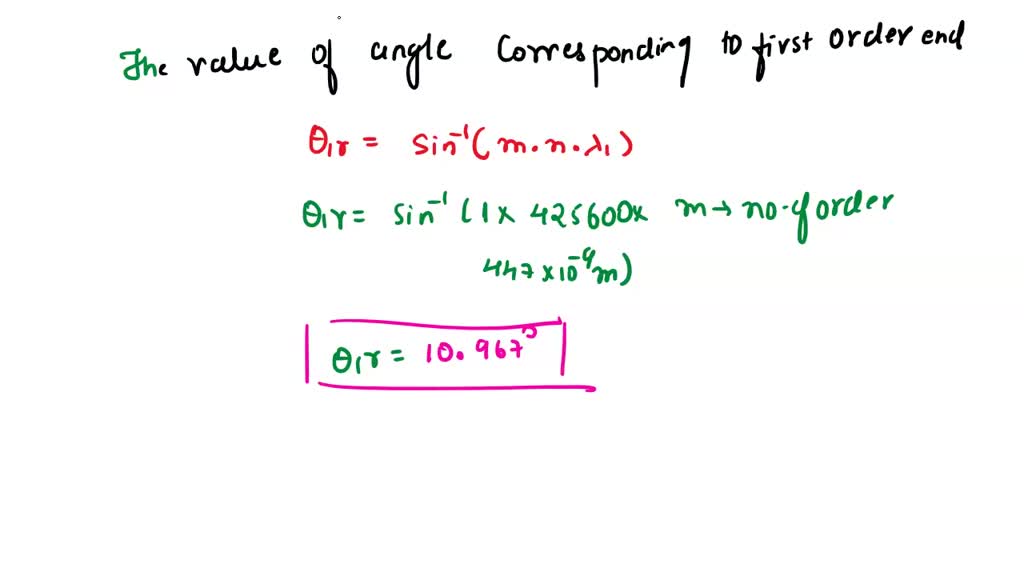 The value of angle corresponding to first order end
θ₁r = sin⁻¹(m.n.λ₁)
θ₁r = sin⁻¹(1 x 425600x m → no. of order
447 x 10⁻⁹m)
θ₁r = 10.967°